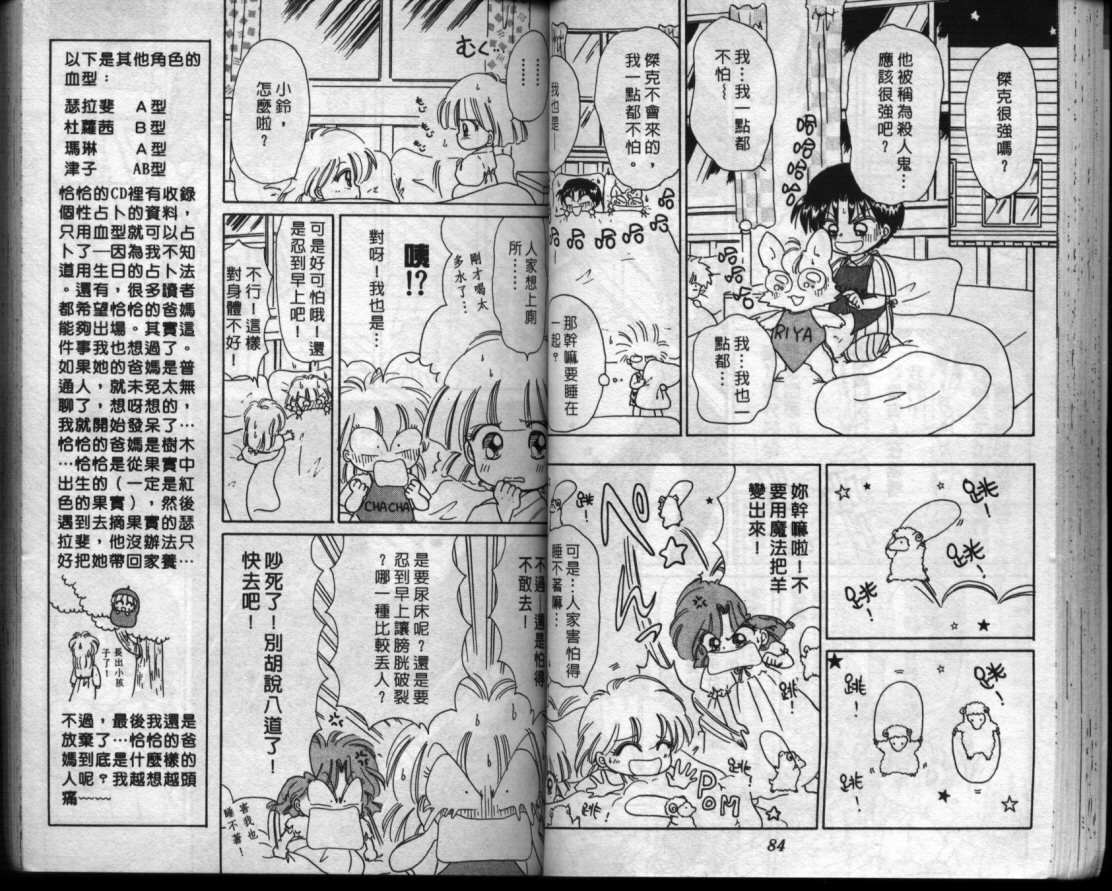 傑克很強嗎?
他被稱為殺人鬼…
應該很強吧?
我…我一點都
不怕~
RIYA
我…我也一
點都…
傑克不會來的,
我一點都不怕。
我也是
那幹嘛要睡在
一起?
跳
跳!
跳!
跳!
跳!
妳幹嘛啦!不
要用魔法把羊
變出來!
跳!
跳!
跳!
可是…人家害怕得
睡不著嘛…
POM
84
………
むく…
小鈴,
怎麼啦?
人家想上廁
所……
剛才喝太
多水了…
咦!?
對呀!我也是…
CHACHA
可是好可怕哦!還
是忍到早上吧!
不行!這樣
對身體不好!
不過,還是怕得
不敢去!
是要尿床呢?還是要
忍到早上讓膀胱破裂
?哪一種比較丟人?
吵死了!別胡說八道了!
快去吧!
害我也
睡不著!
以下是其他角色的
血型:
瑟拉斐 A型
杜蘿茜 B型
瑪琳 A型
津子 AB型
恰恰的CD裡有收錄
個性占卜的資料,
只用血型就可以占
卜了—因為我不知
道用生日的占卜法
。還有,很多讀者
都希望恰恰的爸媽
能夠出場。其實這
件事我也想過了。
如果她的爸媽是普
通人,就未免太無
聊了,想呀想的,
我就開始發呆了…
恰恰的爸媽是樹木
…恰恰是從果實中
出生的(一定是紅
色的果實),然後
遇到去摘果實的瑟
拉斐,他沒辦法只
好把她帶回家養…
長出小孩
子了!
不過,最後我還是
放棄了…恰恰的爸
媽到底是什麼樣的
人呢?我越想越頭
痛~~~